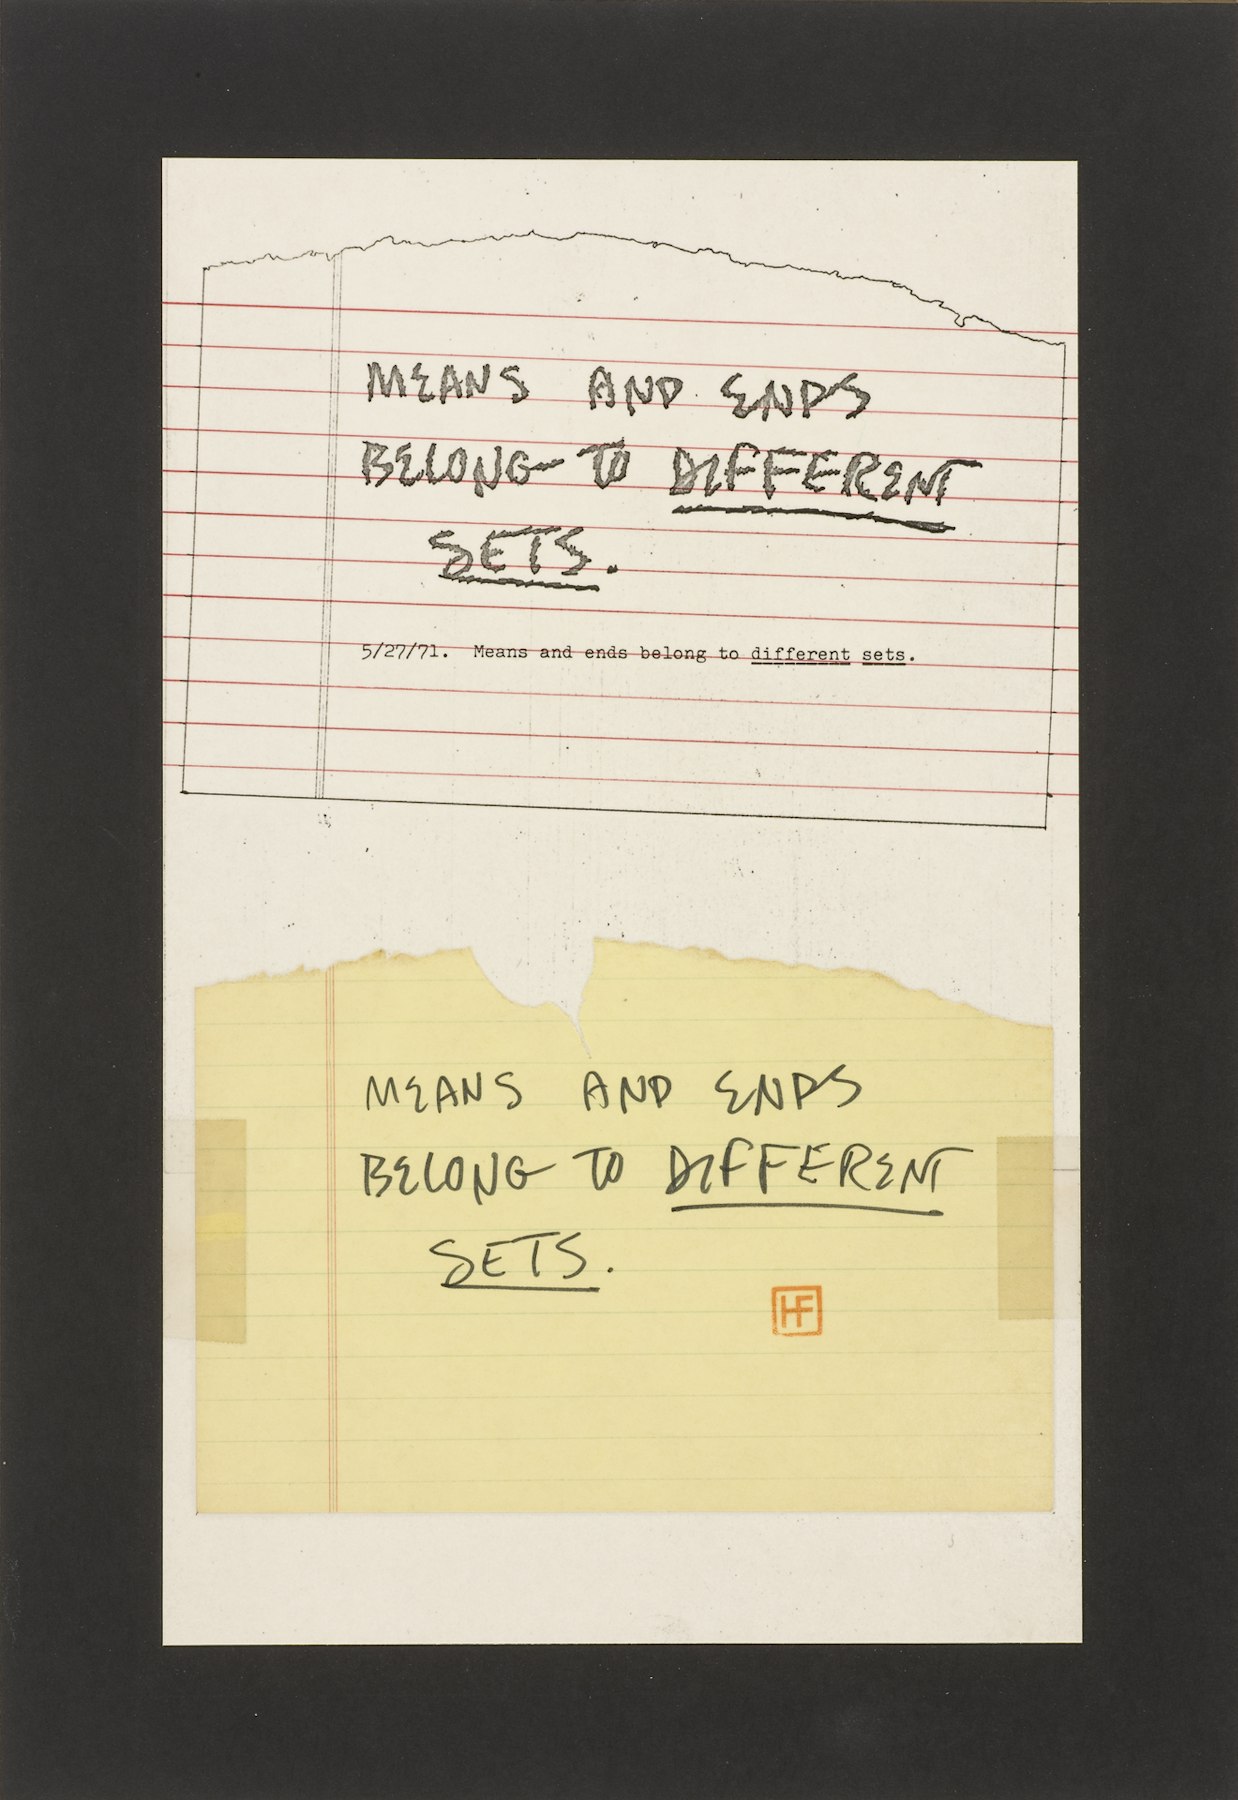 MEANS AND ENDS
BELONG TO DIFFERENT
SETS.
5/27/71. Means and ends belong to different sets.
MEANS AND ENDS
BELONG TO DIFFERENT
SETS.
HF